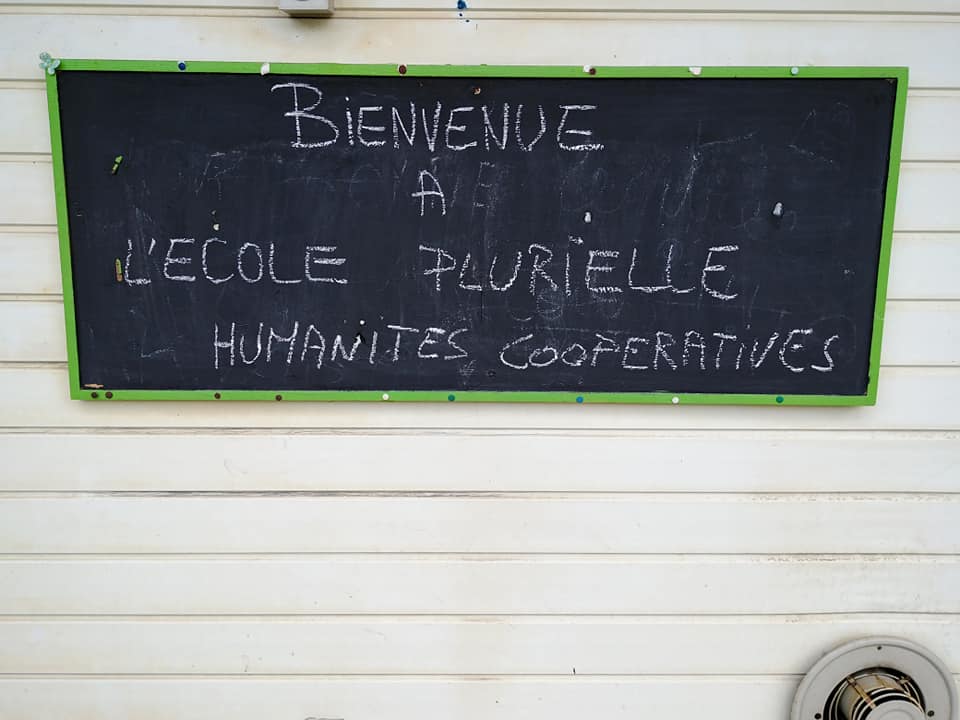 BiENVENUE
A
L'ECOLE PLURIELLE
HUMANITES COOPERATIVES